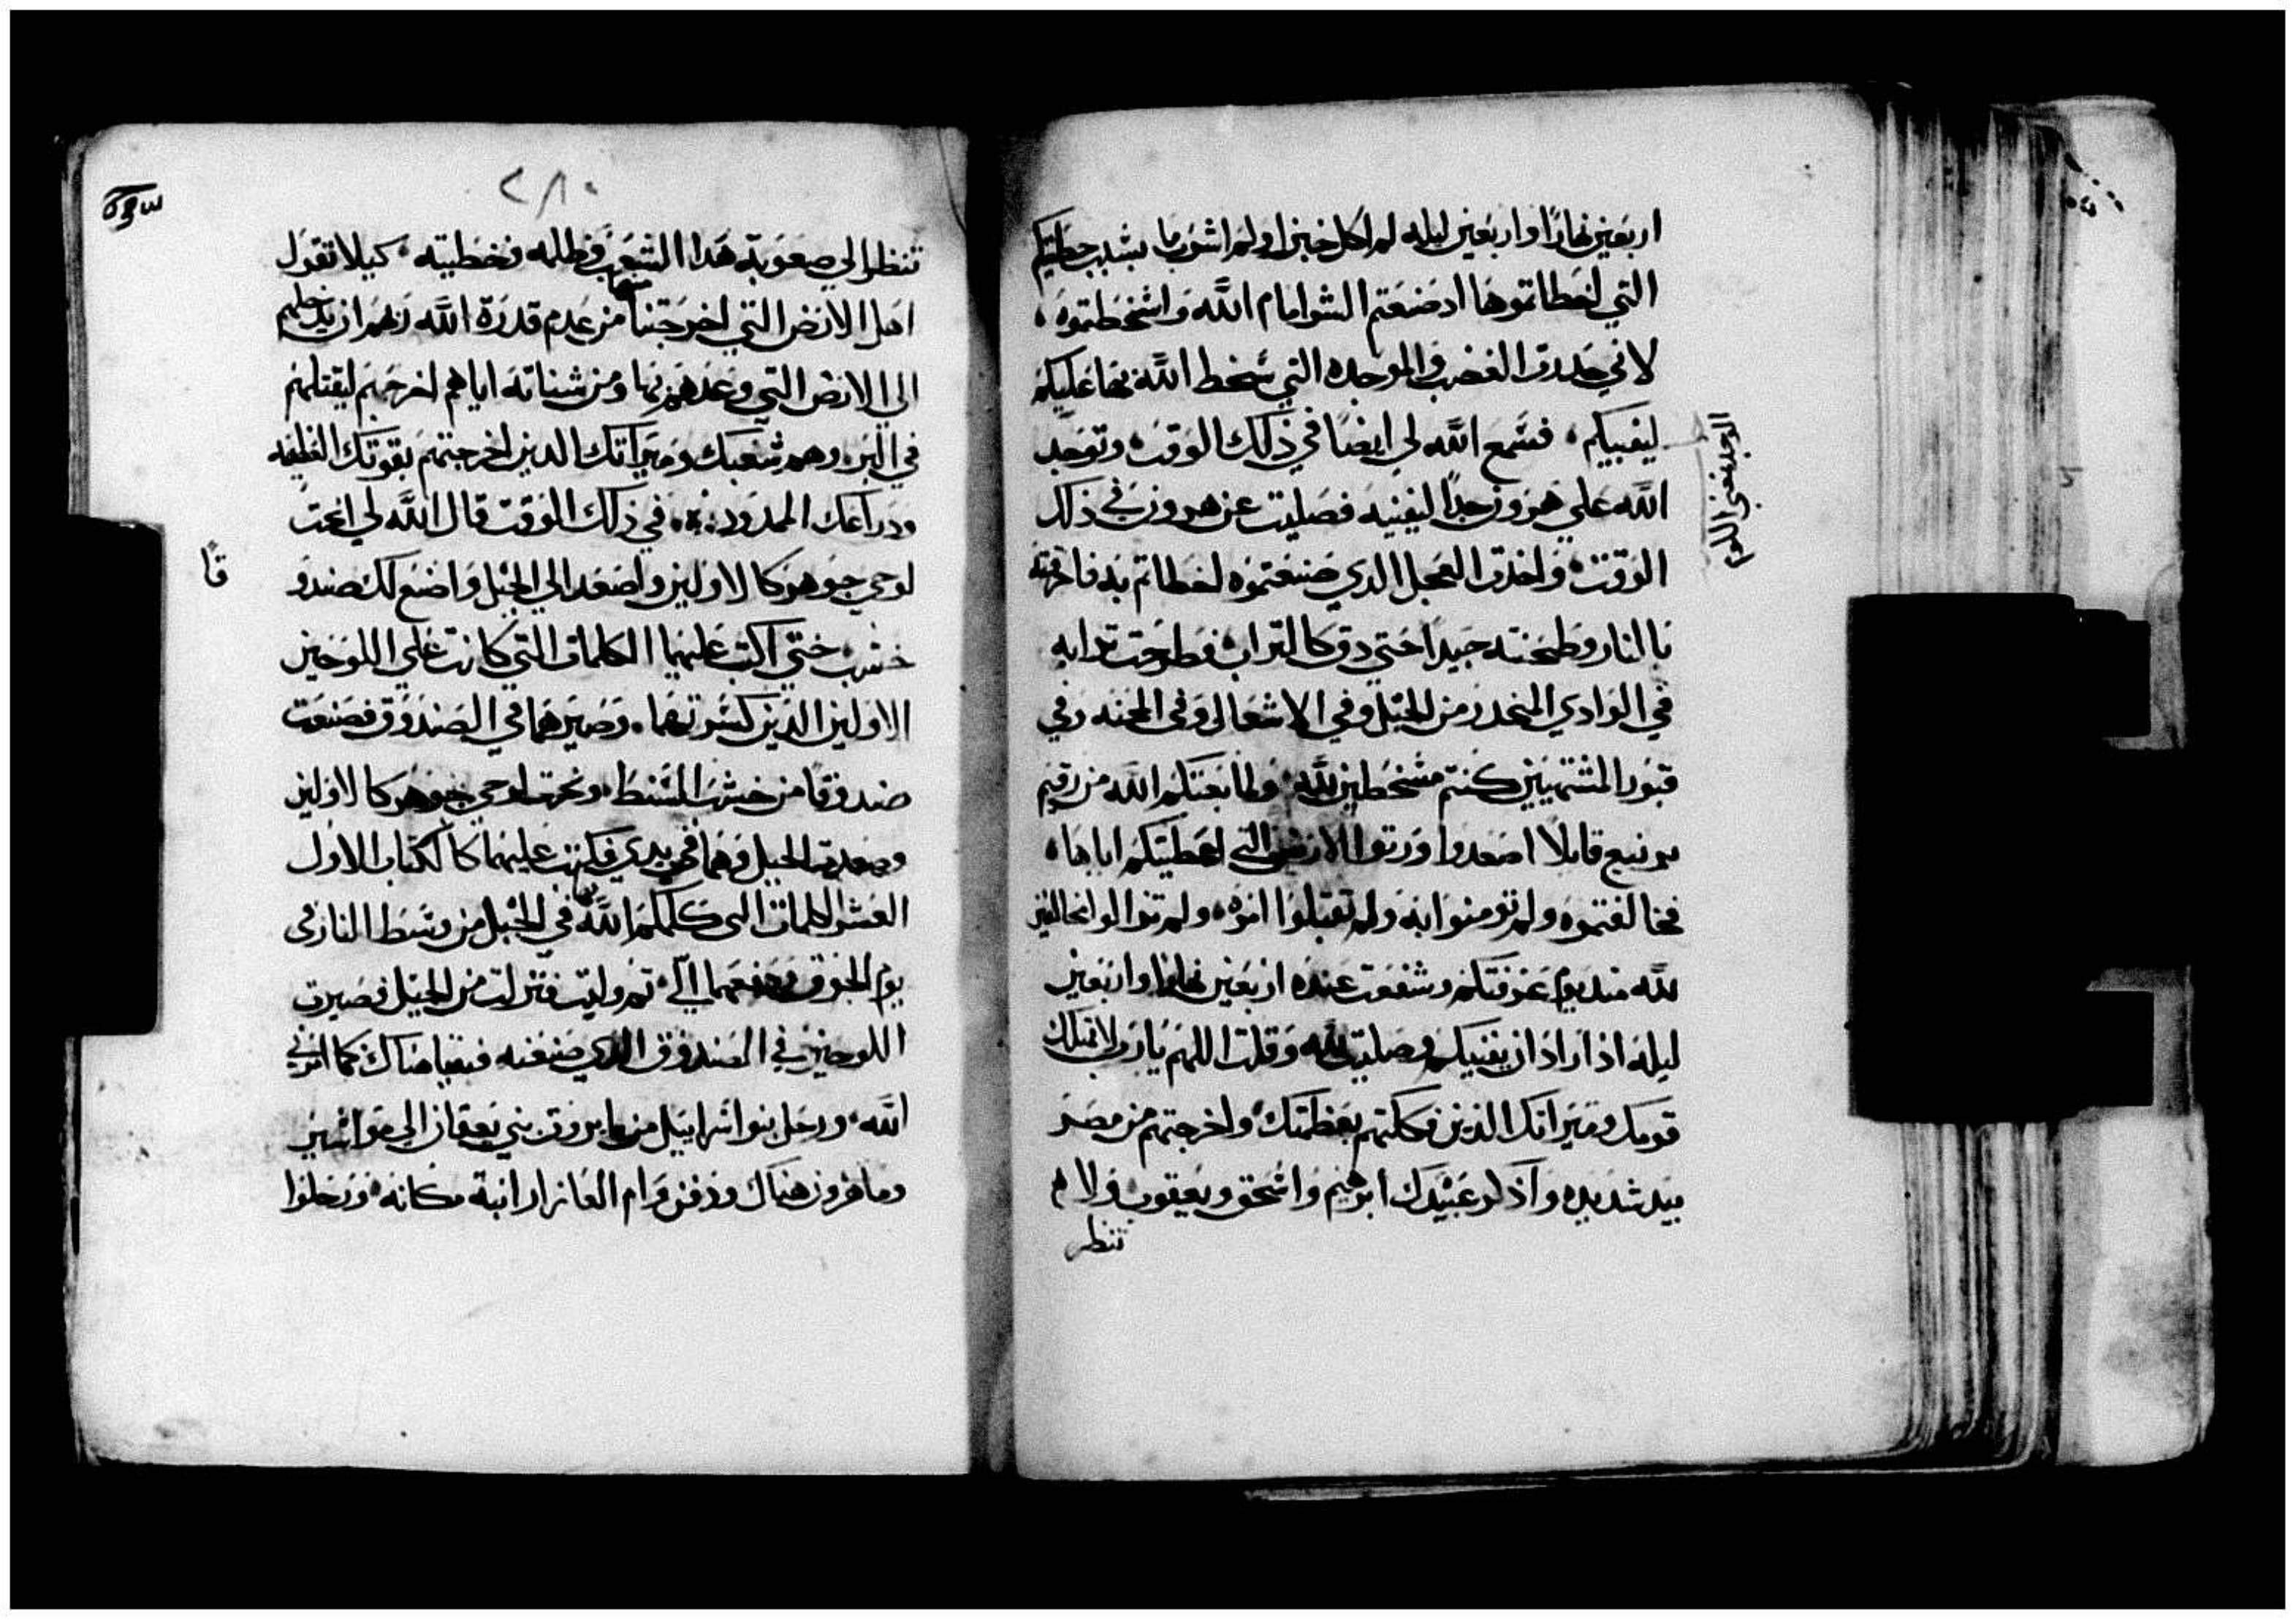 اربعين نهارًا واربعين ليله لم اكل خبزا ولم اشرب ما بسبب خطايكم
التي اخطاتموها اد صنعتم الشر امام الله واسخطتموه
لاني حدرت الغضب والموجده التي سخط الله بها عليكم
ليفنيكم فسمع الله لي ايضًا في ذلك الوقت وتوجد
الله علي هرون جدًا ليفنيه فصليت عن هرون في ذلك
الوقت واخدت العجل الدي صنعتموه اخطاتم به فاحرقته
بالنار وطحنته جيدًا حتي دق كالتراب فطرحت ترابه
في الوادي المنحدر من الجبل وفي الاشعال وفي المحنه وفي
قبور المشتهيين كنتم مسخطين لله ولما بعتكم الله من رقيم
برنيع قايلًا اصعدوا ورتوا الارض التي اعطيتكم اياها
فخالفتموه ولم تومنوا به ولم تقبلوا امره ولم تزالوا مخالفين
لله مند يوم عرفتكم وشفعت عنده اربعين نهارًا واربعين
ليله اذ اراد ان يفنيكم وصليت لله وقلت اللهم يا رب لا تهلك
قومك وميراتك الذين فككتهم بعظمتك واخرجتهم من مصر
بيد شديده واذكر عبيدك ابرهيم واسحق ويعقوب ولا
تنظر
الوجد يعني اللوم
٢٨٠
تنظر الي صعوبة هدا الشعب وظلمه وخطيته كيلا تقول
اهل الارض التي اخرجتنا منها من عدم قدرة الله ربهم ان يدخلهم
الي الارض التي وعدهم بها ومن شناته اياهم اخرجهم ليقتلهم
في البر وهم شعبك وميراتك الدين اخرجتهم بقوتك العظيمه
ودراعك الممدود في ذلك الوقت قال الله لي انحت
لوحي جوهر كالاولين واصعد الي الجبل واصنع لك صندو
قًا
خشب حتي اكتب عليهما الكلمات التي كانت علي اللوحين
الاولين الدين كسرتهما وصيرهما في الصندوق فصنعت
صندوقًا من خشب الشنط ونحت لوحي جوهر كالاولين
وصعدت الجبل وهما في يدي فكتب عليهما كالكتاب الاول
العشر الكلمات التي كلمكم الله بها في الجبل من وسط النار في
يوم الجوق ودفعهما الي تم وليت فنزلت من الجبل فصيرت
اللوحين في الصندوق الدي صنعته فبقيا هناك كما امرني
الله ورحل بنوا اسراييل من بايروت بني يعقان الي مواسير
ومات هرون هناك ودفن وام العازار ابنه مكانه ورحلوا